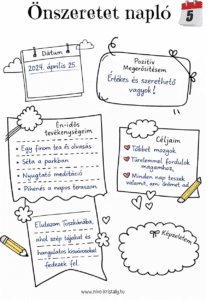 Önszeretet napló
5
Dátum
2024. április 25.
Pozitív
Megerősítésem
Értékes és szerethető
vagyok!
Én-idős
tevékenységeim
• Egy finom tea és olvasás
• Séta a parkban
• Nyugtató meditáció
• Pihenés a napos teraszon.
Céljaim
Többet mozgok.
Türelemmel fordulok
magamhoz,
Minden nap teszek
valamit, ami örömet ad.
Elutazom Toszkánába,
ahol szép tájakat és
hangulatos kisvárosokat
fedezek fel.
Képzeletem